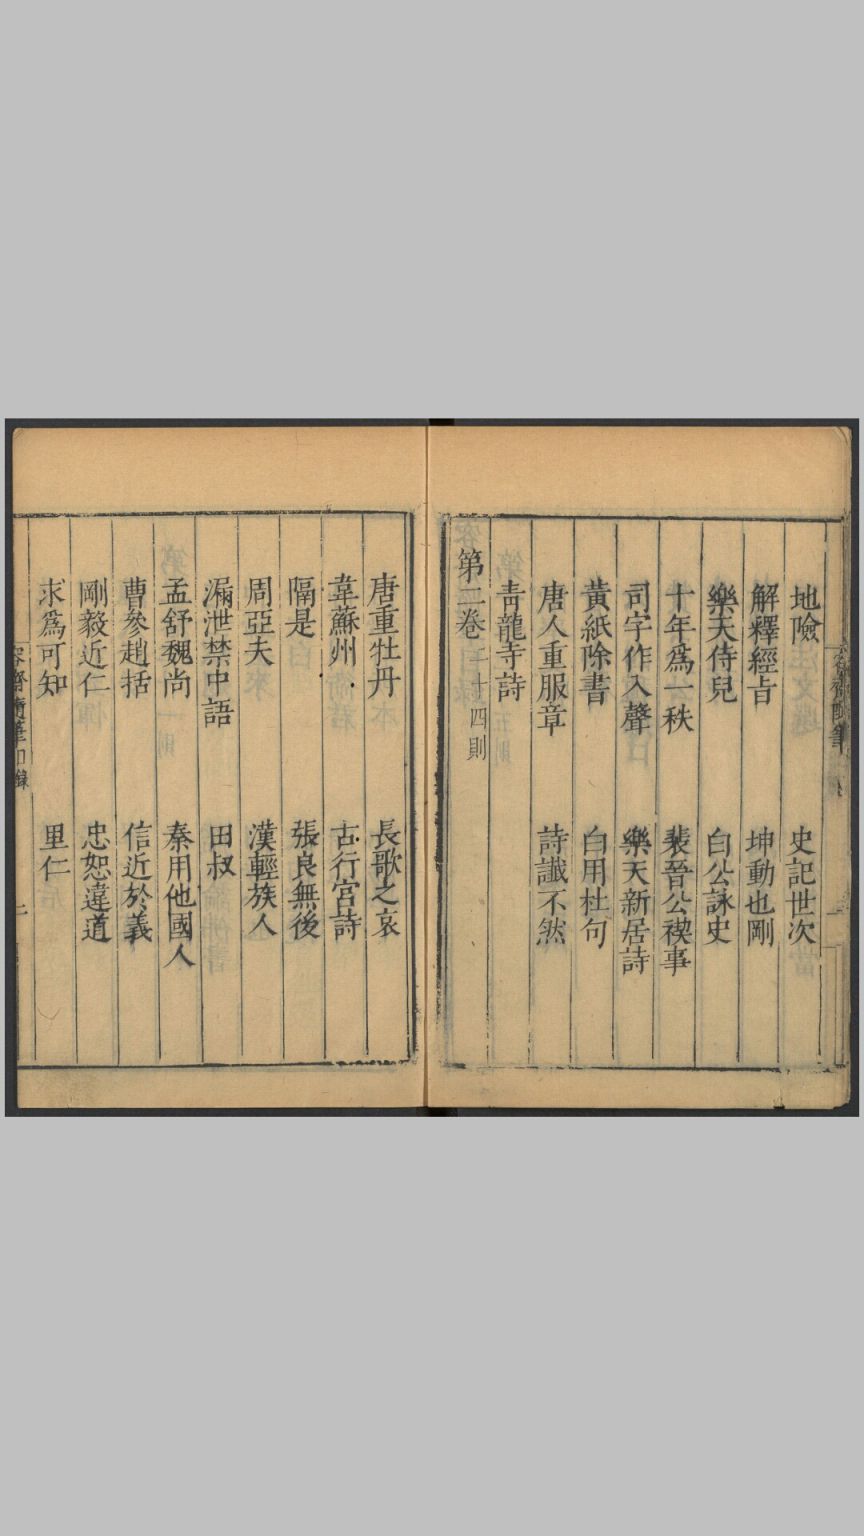 地險 史記世次
解釋經旨 坤動也剛
樂天侍兒 白公詠史
十年爲一秩 裴晉公禊事
司字作入聲 樂天新居詩
黃紙除書 白用杜句
唐人重服章 詩讖不然
靑龍寺詩
第二卷二十四則
唐重牡丹 長歌之哀
韋蘇州 古行宮詩
隔是 張良無後
周亞夫 漢輕族人
漏泄禁中語 田叔
孟舒魏尚 秦用他國人
曹參趙括 信近於義
剛毅近仁 忠恕違道
求爲可知 里仁
容齋隨筆目錄